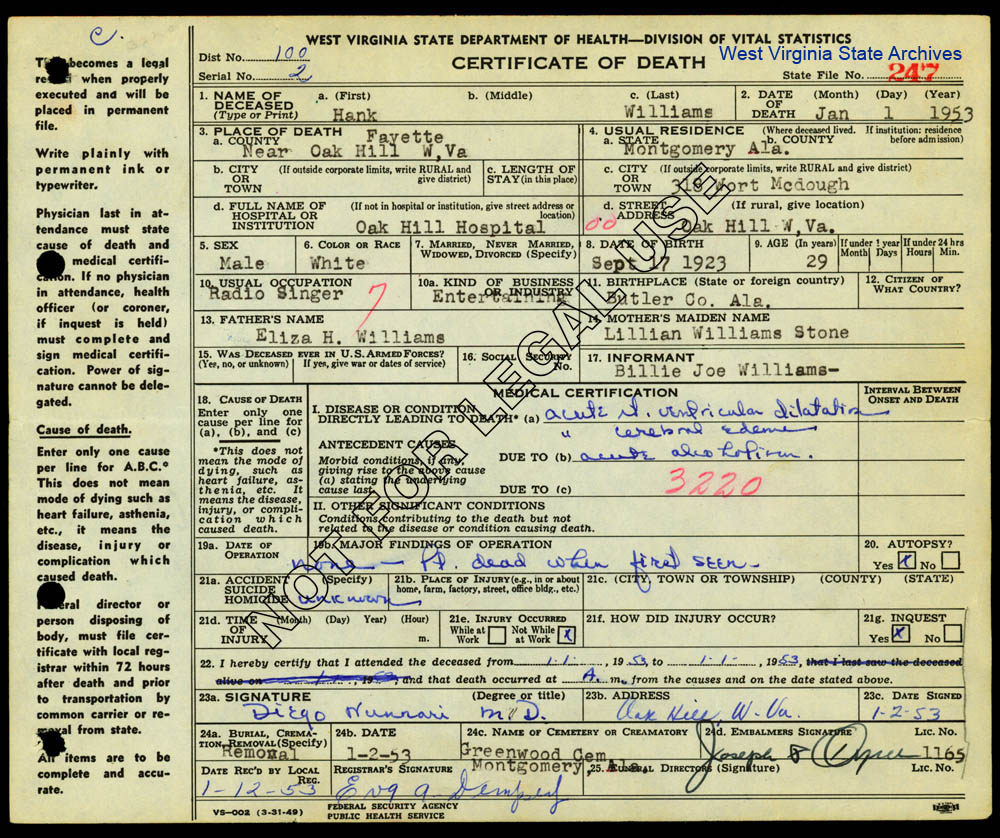 C.
West Virginia State Archives
WEST VIRGINIA STATE DEPARTMENT OF HEALTH—DIVISION OF VITAL STATISTICS
CERTIFICATE OF DEATH
Dist No. 100
Serial No. 2
State File No. 247
becomes a legal
when properly
executed and will be
placed in permanent
file.
Write plainly with
permanent ink or
typewriter.
Physician last in at-
tendance must state
cause of death and
medical certifi-
cation. If no physician
in attendance, health
officer (or coroner,
if inquest is held)
must complete and
sign medical certifi-
cation. Power of sig-
nature cannot be dele-
gated.
Cause of death.
Enter only one cause
per line for A.B.C.*
This does not mean
mode of dying such as
heart failure, asthenia,
etc., it means the
disease, injury or
complication which
caused death.
director or
person disposing of
body, must file cer-
tificate with local reg-
istrar within 72 hours
after death and prior
to transportation by
common carrier or re-
from state.
All items are to be
complete and accu-
rate.
1. NAME OF DECEASED (Type or Print) a. (First) b. (Middle) c. (Last)
Hank Williams
2. DATE OF DEATH (Month) (Day) (Year)
Jan 1 1953
3. PLACE OF DEATH
a. COUNTY Fayette
Near Oak Hill W,Va
4. USUAL RESIDENCE (Where deceased lived. If institution: residence before admission)
a. STATE b. COUNTY
Montgomery Ala.
b. CITY OR TOWN (If outside corporate limits, write RURAL and give district)
c. LENGTH OF STAY (in this place)
c. CITY OR TOWN (If outside corporate limits, write RURAL and give district)
318 Mcdough
d. FULL NAME OF HOSPITAL OR INSTITUTION (If not in hospital or institution, give street address or location)
Oak Hill Hospital
d. STREET ADDRESS (If rural, give location)
Oak Hill W,Va.
5. SEX
Male
6. COLOR OR RACE
White
7. MARRIED, NEVER MARRIED, WIDOWED, DIVORCED (Specify)
8. DATE OF BIRTH
Sept 17 1923
9. AGE (In years)
29
If under 1 year Month Days
If under 24 hrs Hours Min.
10. USUAL OCCUPATION
Radio Singer
7
10a. KIND OF BUSINESS OR INDUSTRY
Entertaining
11. BIRTHPLACE (State or foreign country)
Butler Co. Ala.
12. CITIZEN OF WHAT COUNTRY?
13. FATHER'S NAME
Eliza H. Williams
14. MOTHER'S MAIDEN NAME
Lillian Williams Stone
15. WAS DECEASED EVER IN U.S. ARMED FORCES?
(Yes, no, or unknown) If yes, give war or dates of service)
16. SOCIAL SECURITY No.
17. INFORMANT
Billie Joe Williams-
MEDICAL CERTIFICATION
INTERVAL BETWEEN ONSET AND DEATH
18. CAUSE OF DEATH
Enter only one
cause per line for
(a), (b), and (c)
*This does not
mean the mode of
dying, such as
heart failure, as-
thenia, etc. It
means the disease,
injury, or compli-
cation which
caused death.
I. DISEASE OR CONDITION
DIRECTLY LEADING TO DEATH* (a) acute rt. ventricular dilatation
" cerebral edema
ANTECEDENT CAUSES
Morbid conditions, if any,
giving rise to the above cause
(a) stating the underlying
cause last.
DUE TO (b) acute
DUE TO (c)
3220
II. OTHER SIGNIFICANT CONDITIONS
Conditions contributing to the death but not
related to the disease or condition causing death.
19a. DATE OF OPERATION
19b. MAJOR FINDINGS OF OPERATION
none — Pt. dead when first seen.
20. AUTOPSY?
Yes X No
21a. ACCIDENT SUICIDE HOMICIDE (Specify)
unknown
21b. PLACE OF INJURY (e.g., in or about home, farm, factory, street, office bldg., etc.)
21c. (CITY, TOWN OR TOWNSHIP) (COUNTY) (STATE)
21d. TIME OF INJURY (Month) (Day) (Year) (Hour) m.
21e. INJURY OCCURRED
While at Work Not While at Work X
21f. HOW DID INJURY OCCUR?
21g. INQUEST
Yes X No
22. I hereby certify that I attended the deceased from 1-1-, 1953, to 1-1-, 1953, that I last saw the deceased
alive on , 19 , and that death occurred at A. m., from the causes and on the date stated above.
23a. SIGNATURE (Degree or title)
Diego Nunnari M D.
23b. ADDRESS
Oak Hill, W-Va.
23c. DATE SIGNED
1-2-53
24a. BURIAL, CREMATION, REMOVAL (Specify)
Removal
24b. DATE
1-2-53
24c. NAME OF CEMETERY OR CREAMATORY
Greenwood Cem
Montgomery, Ala
24d. EMBALMERS SIGNATURE LIC. NO.
Joseph 1165
DATE REC'D BY LOCAL REG.
1-12-53
REGISTRAR'S SIGNATURE
Eva A Dempsey
25. FUNERAL DIRECTORS (Signature) LIC. NO.
VS-002 (3-31-49)
FEDERAL SECURITY AGENCY
PUBLIC HEALTH SERVICE
NOT FOR LEGAL USE